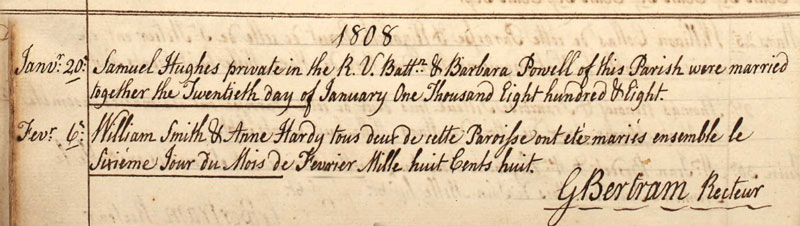 1808
Janvr. 20: Samuel Hughes private in the R. V. Battn. & Barbara Powell of this Parish were married
together the Twentieth day of January One Thousand Eight hundred & Eight.
Fevr. 6: William Smith & Anne Hardy tous deux de cette Paroisse ont eté mariés ensemble le
Sixiéme Jour du Mois de Fevrier Mille huit Cents huit.
G Bertram Recteur